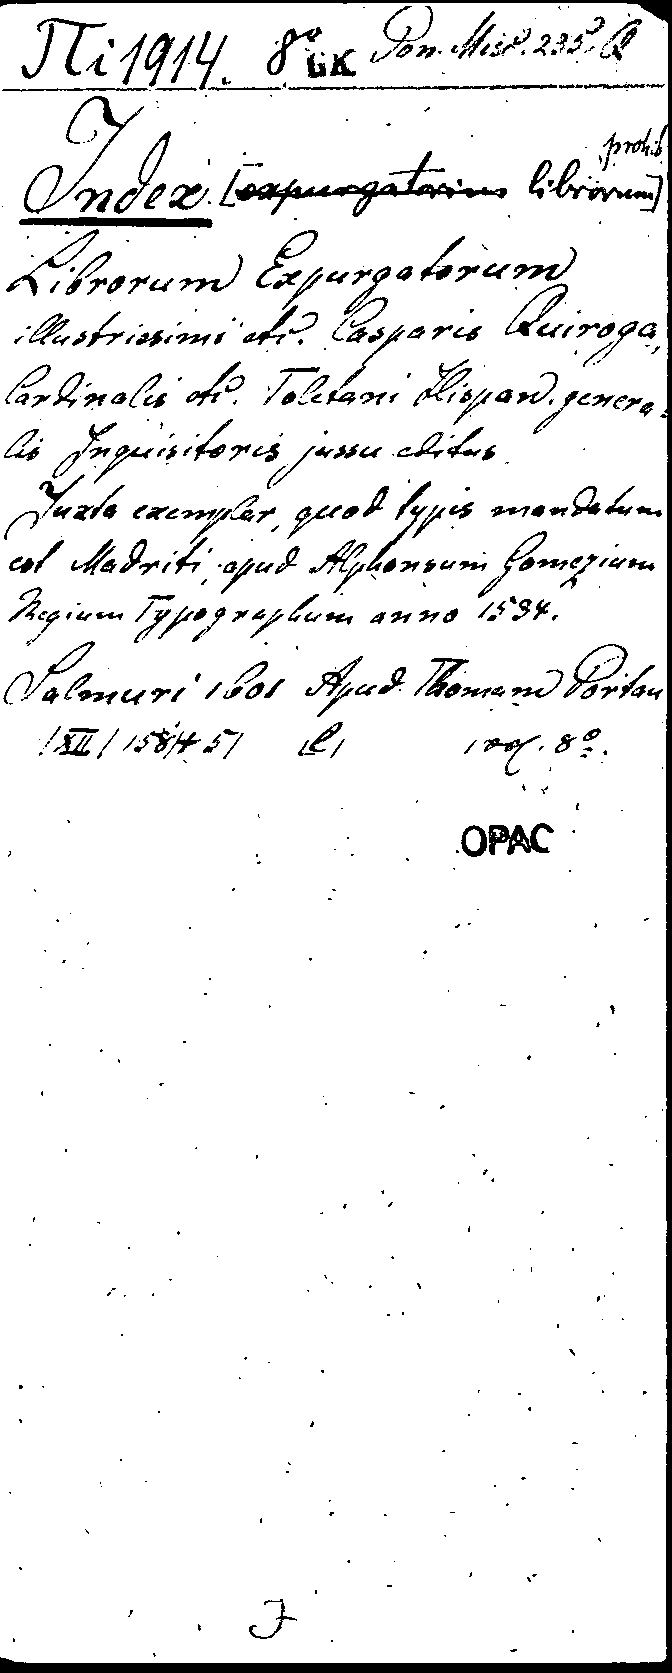 Пi 1914. 8° GK Pon. Misc. 235. Q
prohib.
Index [expurgatorius librorum]
Librorum Expurgatorum
illustrissimi etc. Casparis Quiroga,
Cardinalis etc. Toletani Hispan. genera-
lis Inquisitoris jussu editus
Juxta exemplar, quod typis mandatum
est Madriti, apud Alphonsum Gomezium
Regium Typographum anno 1584.
Salmuri 1601 Apud Thomam Portau
/XII/ 158/+ 5/ 8°.
OPAC
J